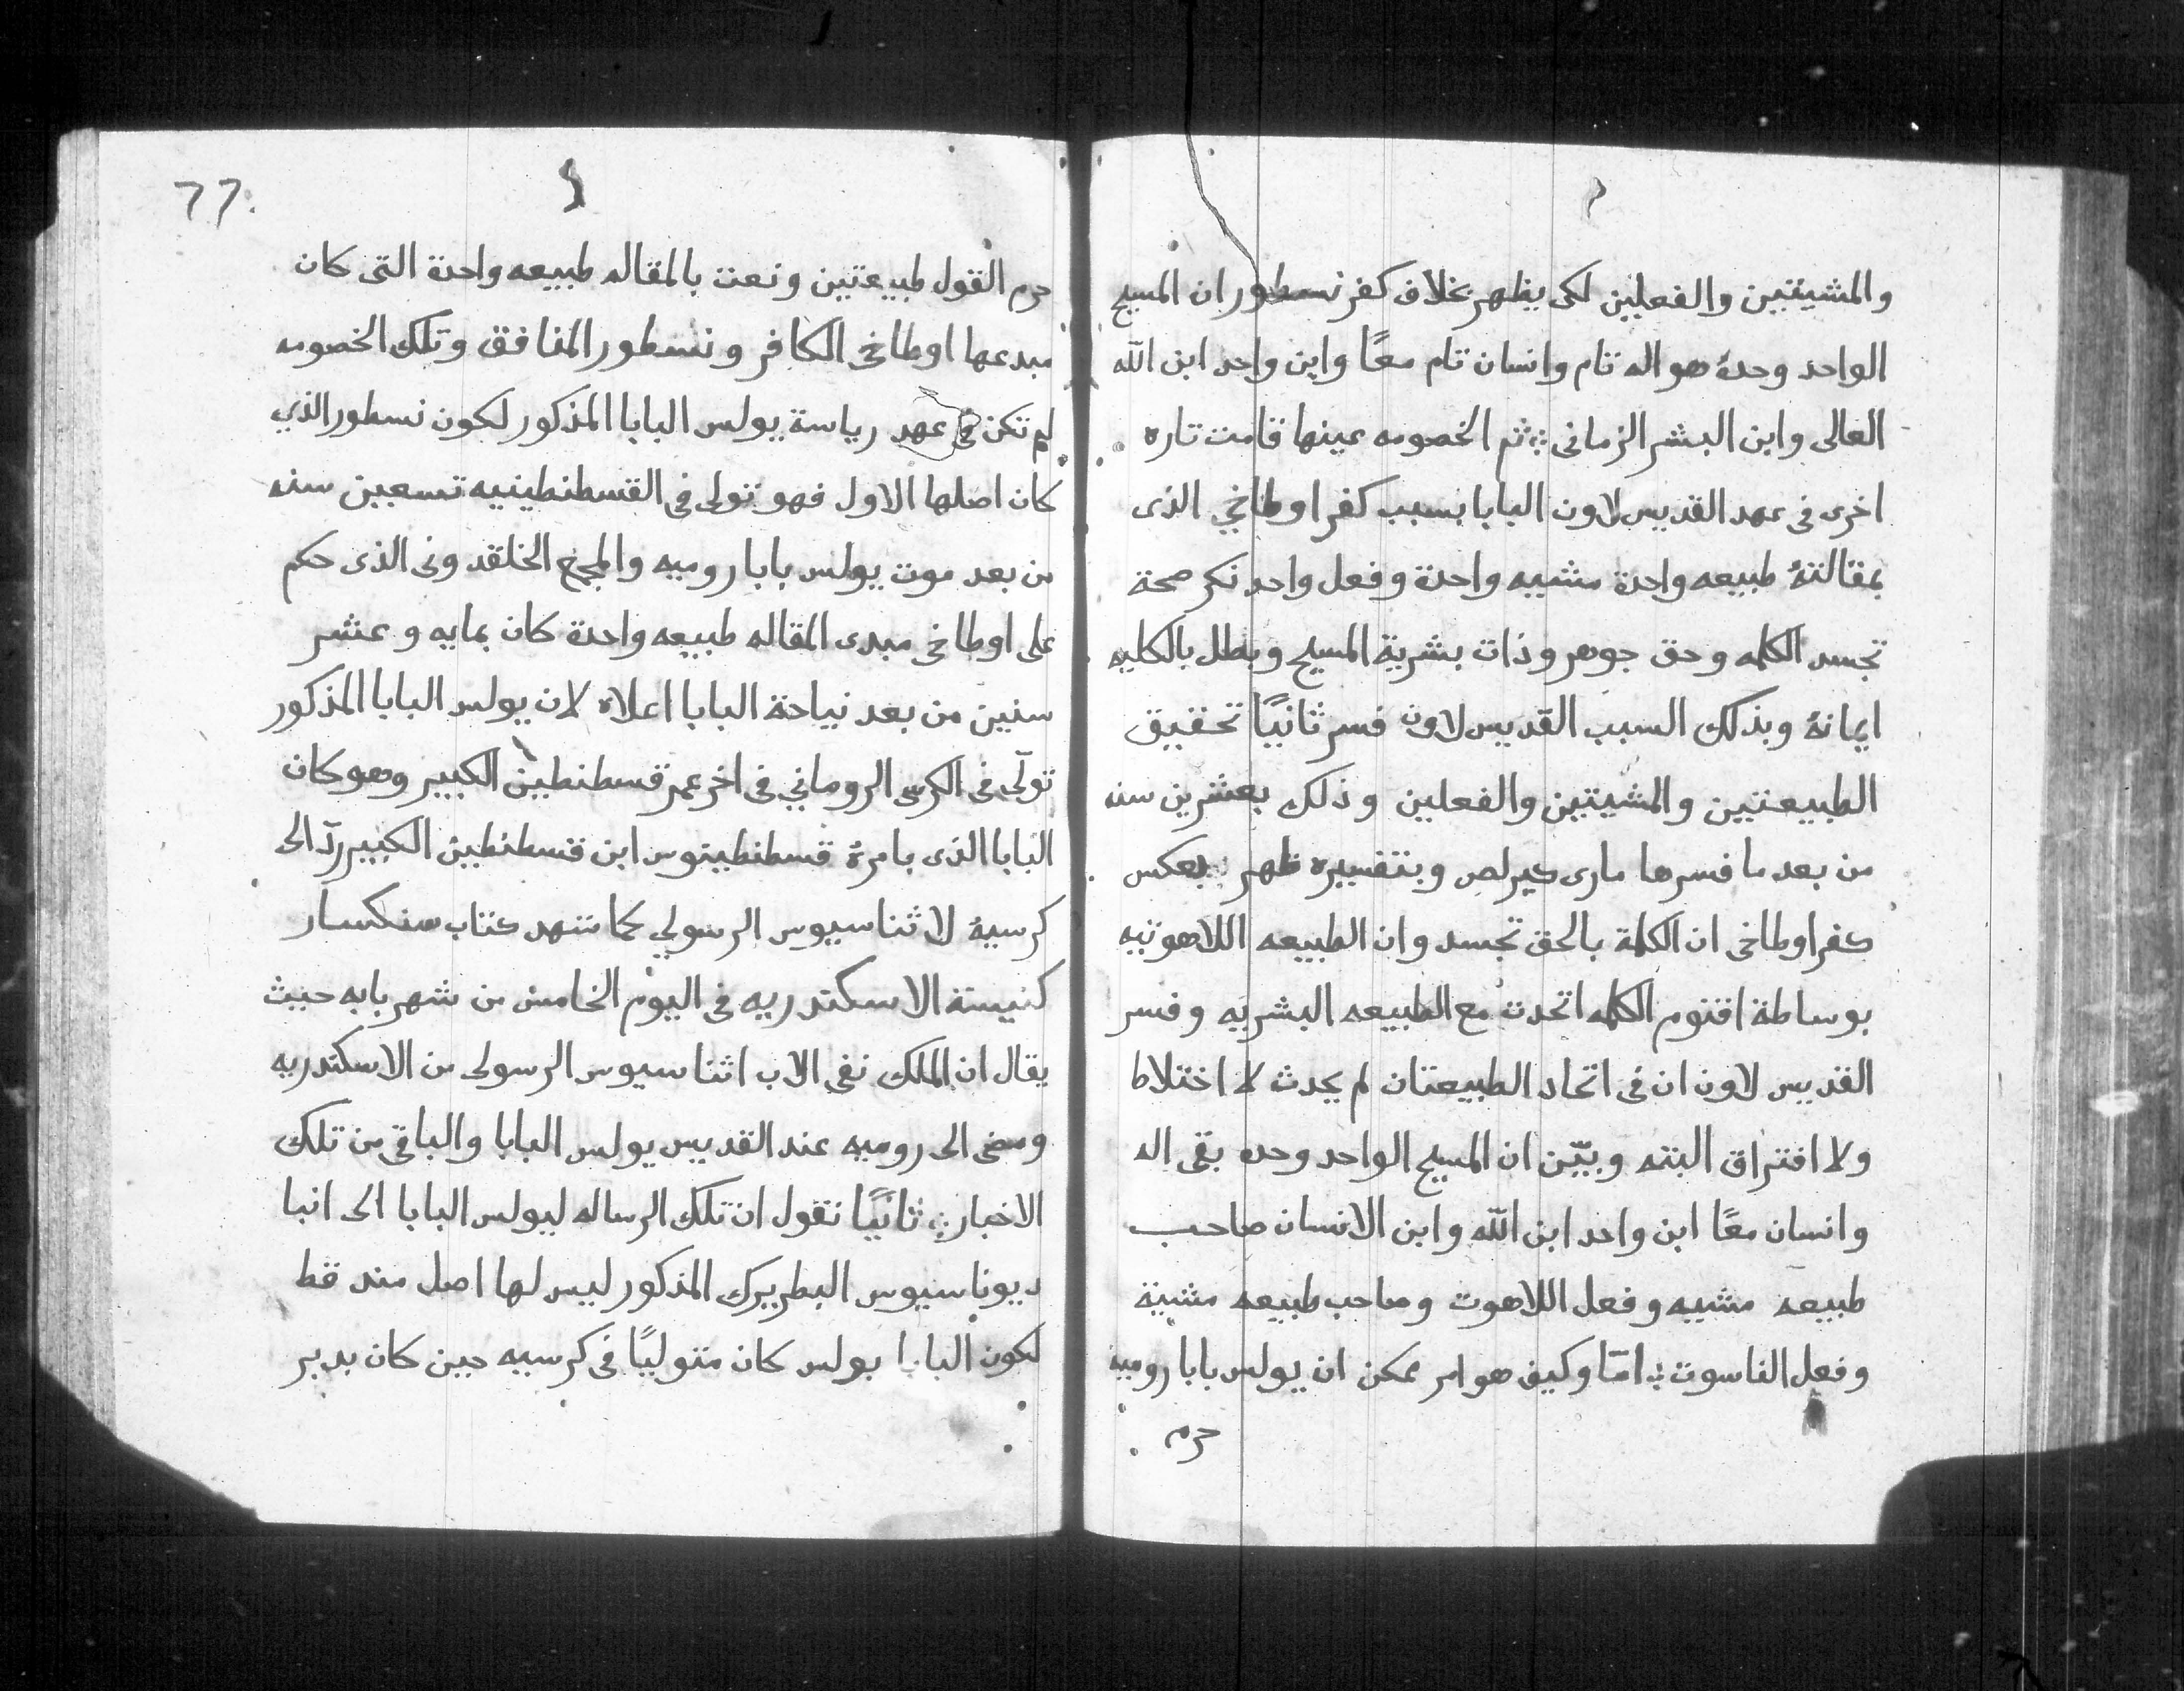 والمشيئتين والفعلين لكى يظهر بخلاف كفر نسطور ان المسيح
الواحد وحدهُ هو اله تام وانسان تام معًا وابن واحد ابن اللّه
العالى وابن البشر الزمانى ثم الخصومه عينها قامت تاره
اخرى فى عهد القديس لاون البابا بسبب كفر اوطاخي الذى
بمقالتهُ طبيعه واحدة مشييه واحدة وفعل واحد نكر صحة
تجسد الكلمه وحق جوهر وذات بشرية المسيح وبطل بالكليه
ايمانهُ وبذلك السبب القديس لاون فسر ثانيًا تحقيق
الطبيعتين والمشيتين والفعلين وذلك بعشرين سنه
من بعد ما فسرها مارى كيرلص وبتفسيره ظهر بعكس
كفر اوطاخى ان الكلمة بالحق تجسد وان الطبيعه اللاهوتيه
بوساطة اقنوم الكلمه اتحدت مع الطبيعه البشريه وفسر
القديس لاون ان فى اتحاد الطبيعتان لم يحدث لا اختلاط
ولا افتراق البته وبيّن ان المسيح الواحد وحده بقى اله
وانسان معًا ابن واحد ابن اللّه وابن الانسان صاحب
طبيعه مشييه وفعل اللاهوت وصاحب طبيعه مشيية
وفعل الناسوت امّا وكيف هو امر ممكن ان بولس بابا روميه
حرم
77.
حرم القول طبيعتين ونعت بالمقاله طبيعه واحدة التى كان
مبدعها اوطاخى الكافر ونسطور المنافق وتلك الخصومه
لم تكن فى عهد رياسة يولس البابا المذكور لكون نسطور الذي
كان اصلها الاول فهو تولى فى القسطنطينيه تسعين سنه
من بعد موت يولس بابا روميه والمجمع الخلقدونى الذى حكم
على اوطاخى مبدى المقاله طبيعه واحدة كان بمايه وعشر
سنين من بعد نياحة البابا اعلاه لان يولس البابا المذكور
تولّى فى الكرسى الرومانى فى اخر عمر قسطنطين الكبير وهو كان
البابا الذى بامرهُ قسطنطينوس ابن قسطنطين الكبير ردّ الى
كرسيهُ لاثناسيوس الرسولي كما شهد كتاب سنكسار
كنيسة الاسكندريه فى اليوم الخامس من شهر بابه حيث
يقال ان الملك نفى الاب اثناسيوس الرسولى من الاسكندريه
ومضى الى روميه عند القديس يولس البابا والباقى من تلك
الاخبار ثانيًا نقول ان تلك الرساله ليولس البابا الى انبا
ديوناسيوس البطريرك المذكور ليس لها اصل مند قط
لكون البابا بولس كان متوليًا فى كرسيه حين كان يدبر